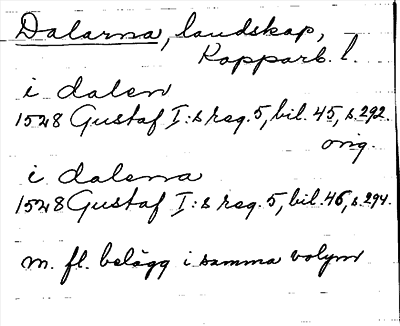 Dalarna, landskap,
Kopparb. l.
i dalen
1528 Gustaf I:s reg. 5, bil. 45, s. 292.
orig.
i dalena
1528 Gustaf I:s reg. 5, bil. 46, s. 294.
m. fl. belägg i samma volym